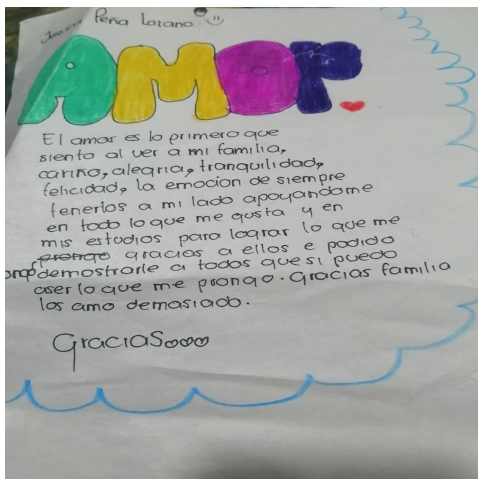 Peña Lozano
AMOR
El amor es lo primero que
siento al ver a mi familia,
cariño, alegria, tranquilidad,
felicidad, la emocion de siempre
tenerlos a mi lado apoyandome
en todo lo que me gusta y en
mis estudios para lograr lo que me
prongo gracias a ellos e podido
demostrarle a todos que si puedo
aser lo que me prongo. Gracias familia
los amo demasiado.
Gracias